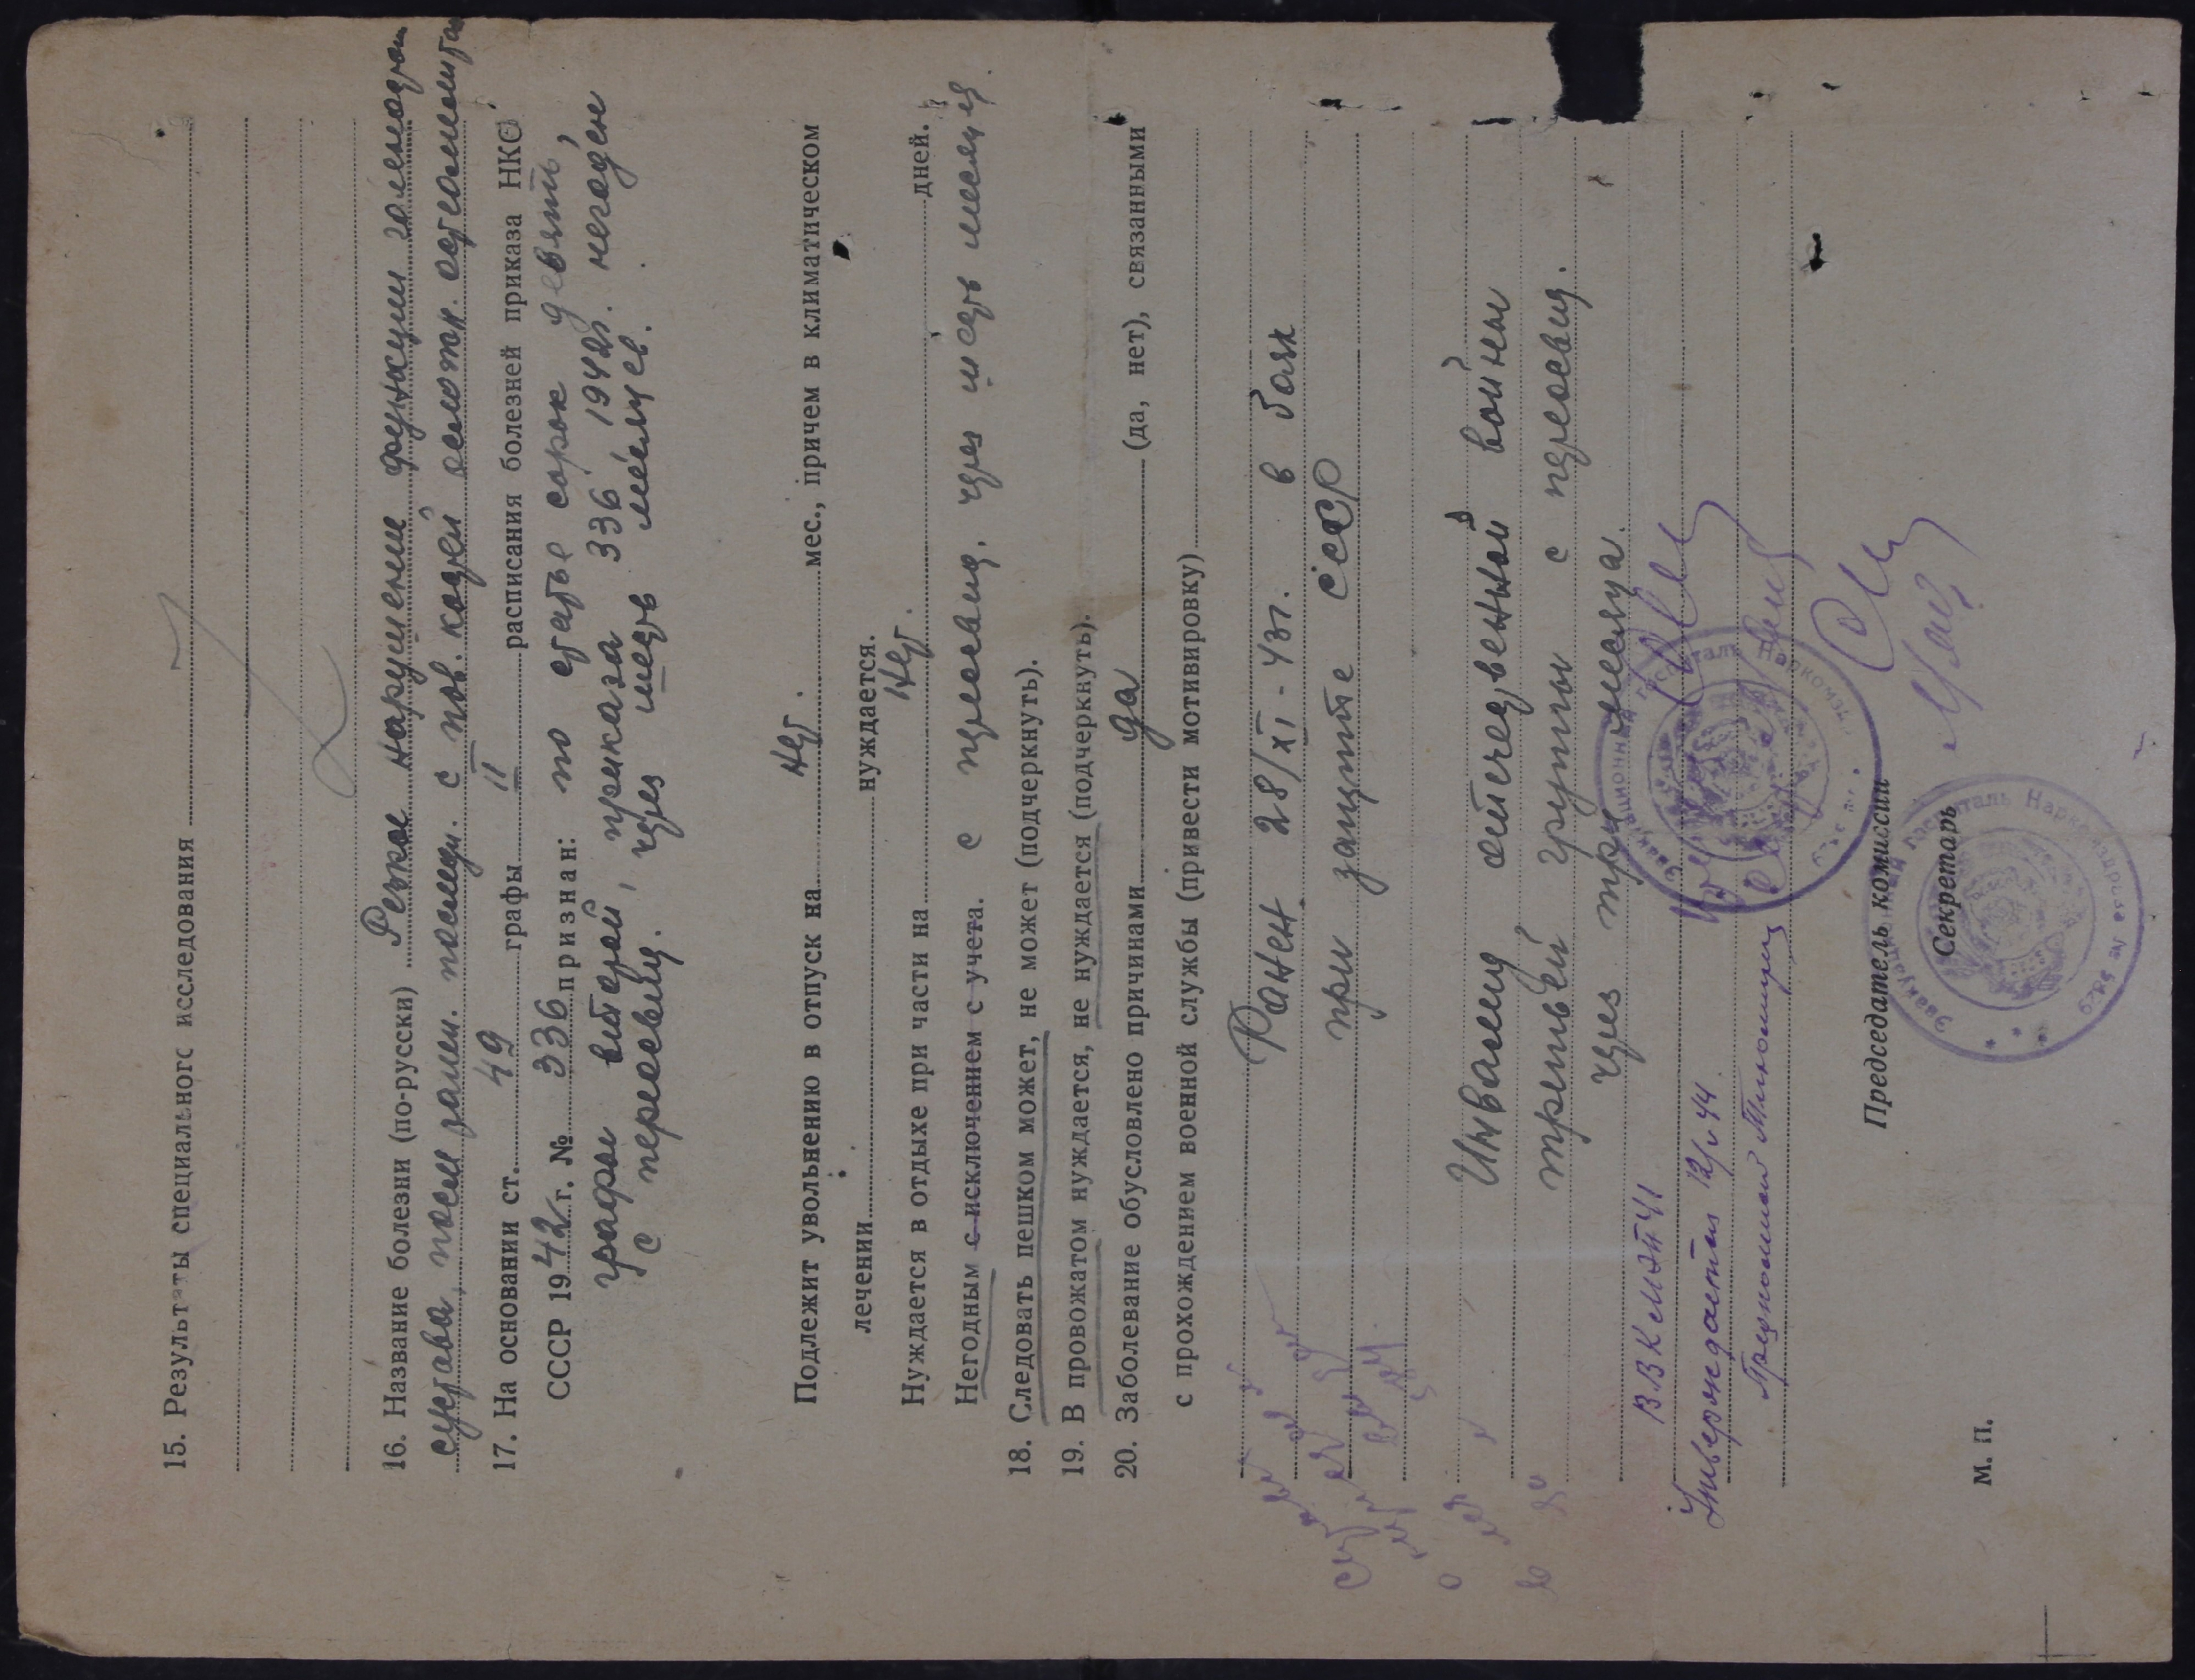 15. Результаты специальног исследования
16. Название болезни (по-русски) Резкое нарушение функции голеностоп
сустава, после ранен. с пов. костей осложн. остеомиелитом
17. На основании ст. 49 графы II расписания болезней приказа НКО
СССР 1942 г. № 336 признан: по статье сорок девять,
графы второй, приказа 336 1942г. негоден
с переосвид. через шесть месяцев.
Подлежит увольнению в отпуск на нет. мес., причем в климатическом
лечении нуждается.
Нуждается в отдыхе при части на нет. дней.
Негодным с исключением с учета. с переосвид. через шесть месяцев.
18. Следовать пешком может, не может (подчеркнуть).
19. В провожатом нуждается, не нуждается (подчеркнуть).
20. Заболевание обусловлено причинами да (да, нет), связанными
с прохождением военной службы (привести мотивировку)
Ранен 28/XI-43г. в боях
при защите СССР
Инвалид отечественной войны
третьей группы с переосвид.
через три месяца.
ВВК
Утверждает 12/V 44
Председатель комиссии
Секретарь
М. П.
Эвакуационный госпиталь Наркомздрав
Эвакуационный госпиталь Наркомздрав №